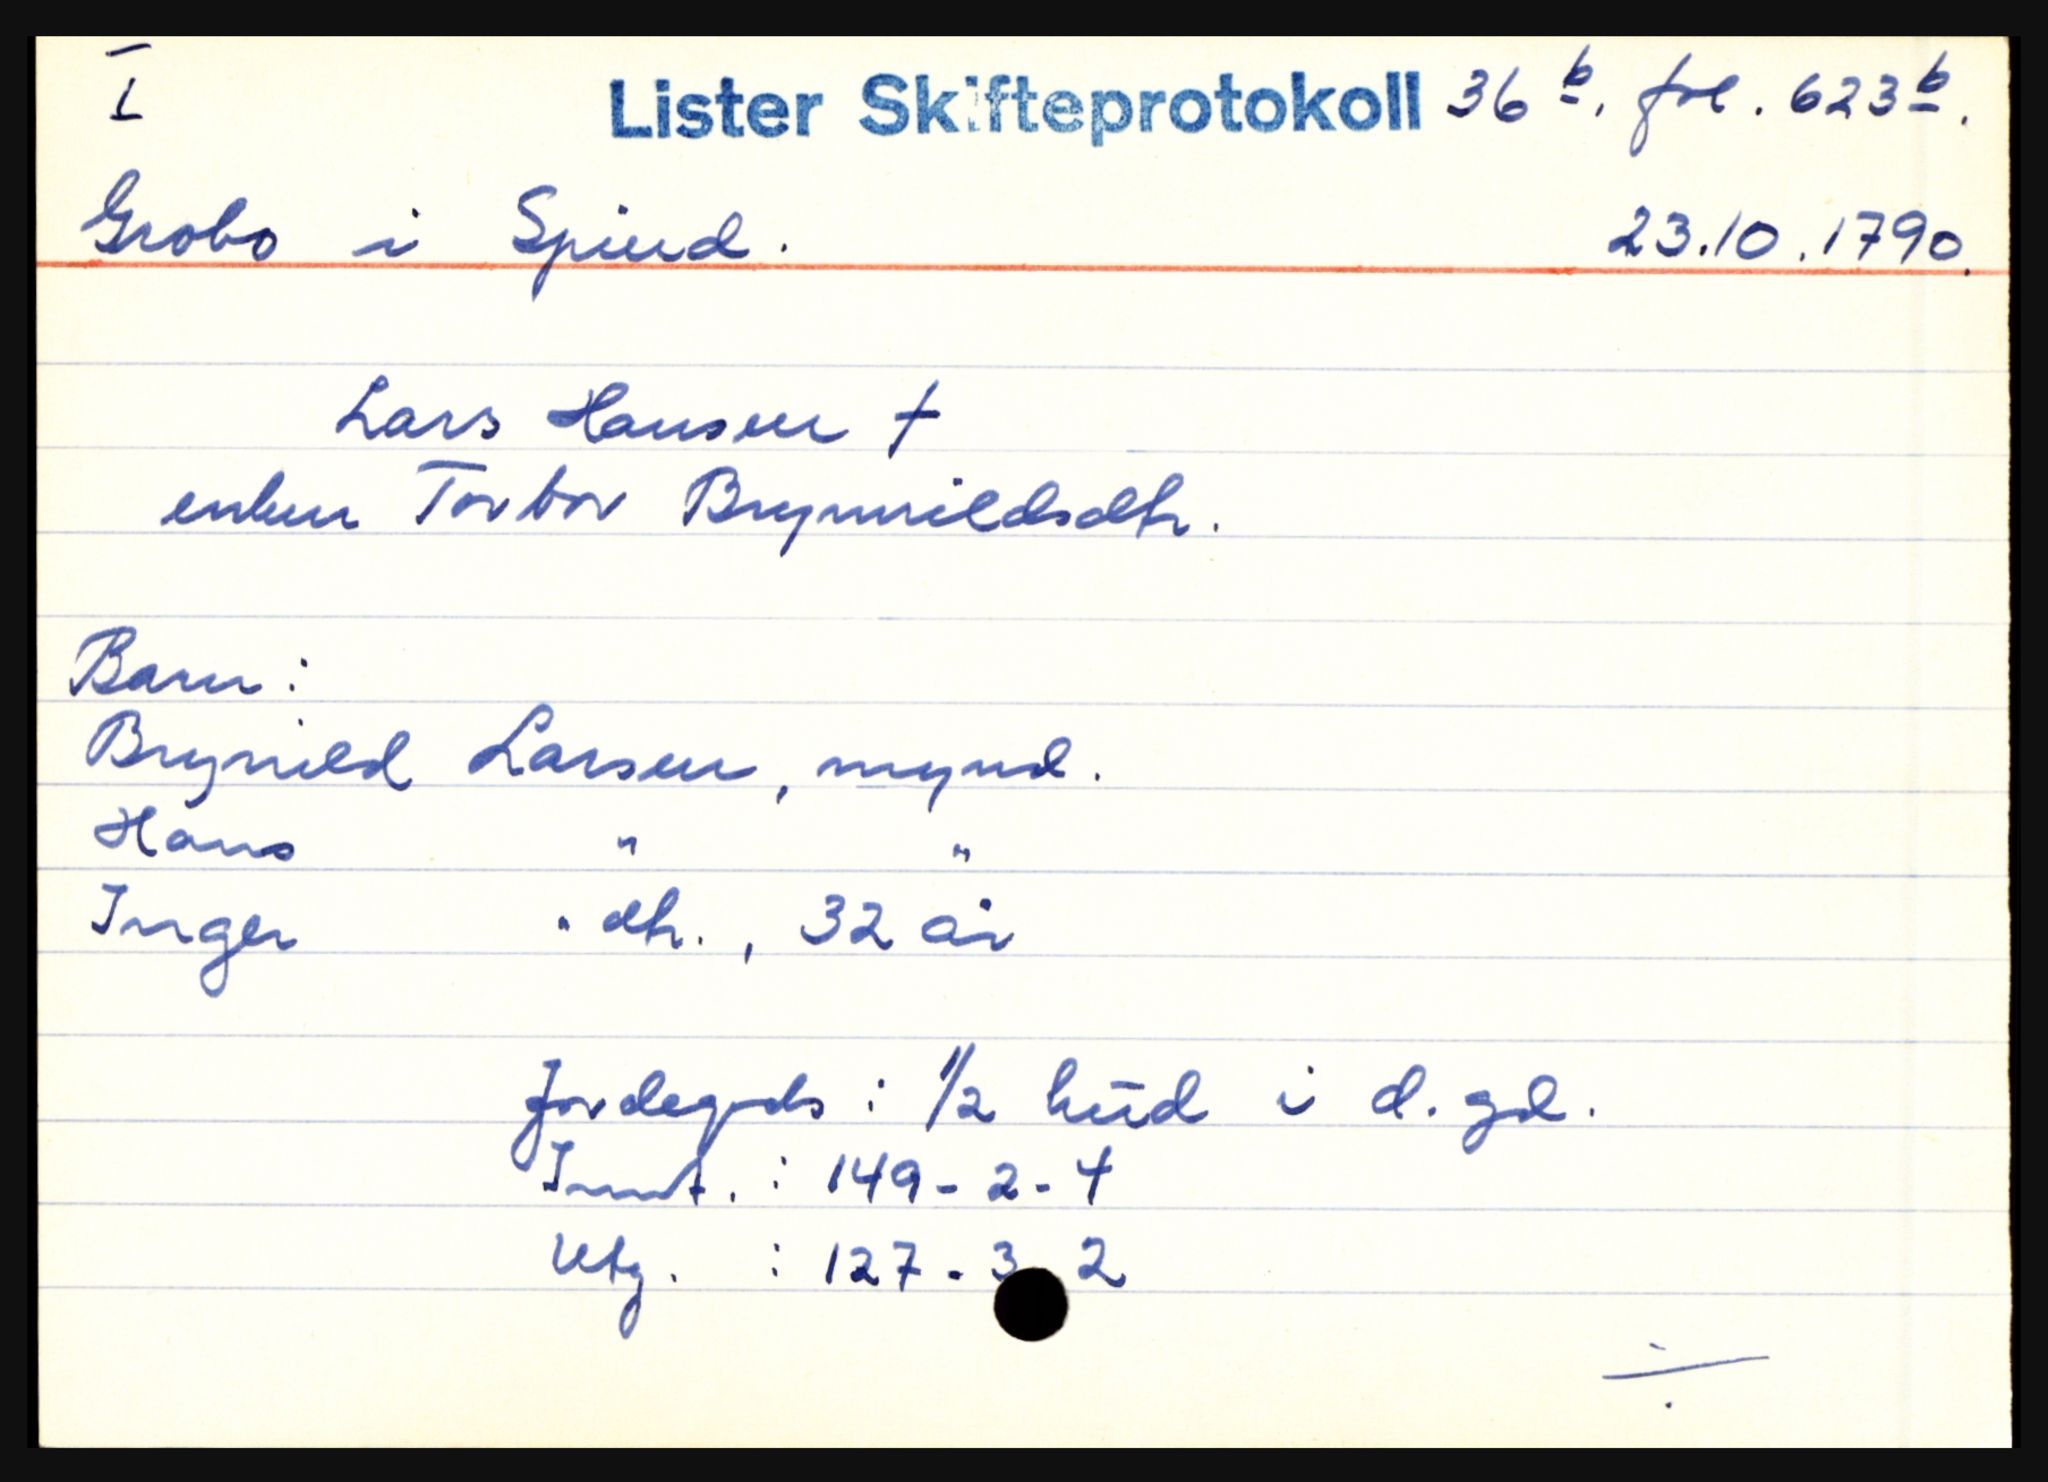 I
Lister Skifteprotokoll 36 b. fol. 623 b.
Grobo i Spind. 23.10.1790.
Lars Hansen †
enken Torbor Brynnildsdtr.
Barn:
Brynild Larsen, mynd.
Hans " "
Inger " dtr., 32 år
Jordegods: 1/2 hud i d. gd.
Innt. : 149 - 2 - 4
Utg. : 127 - 3 2